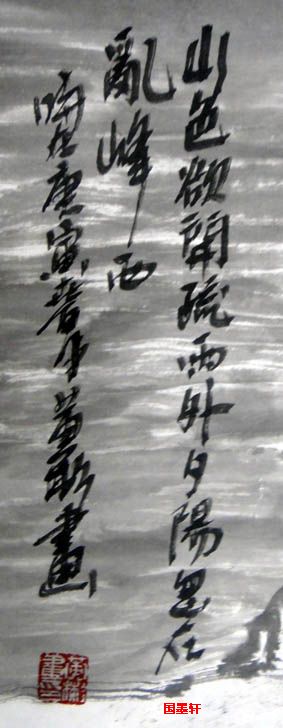 山色欲開疏雨外夕陽忽在
亂峰西
時在庚寅春月黃毅畫
国墨轩